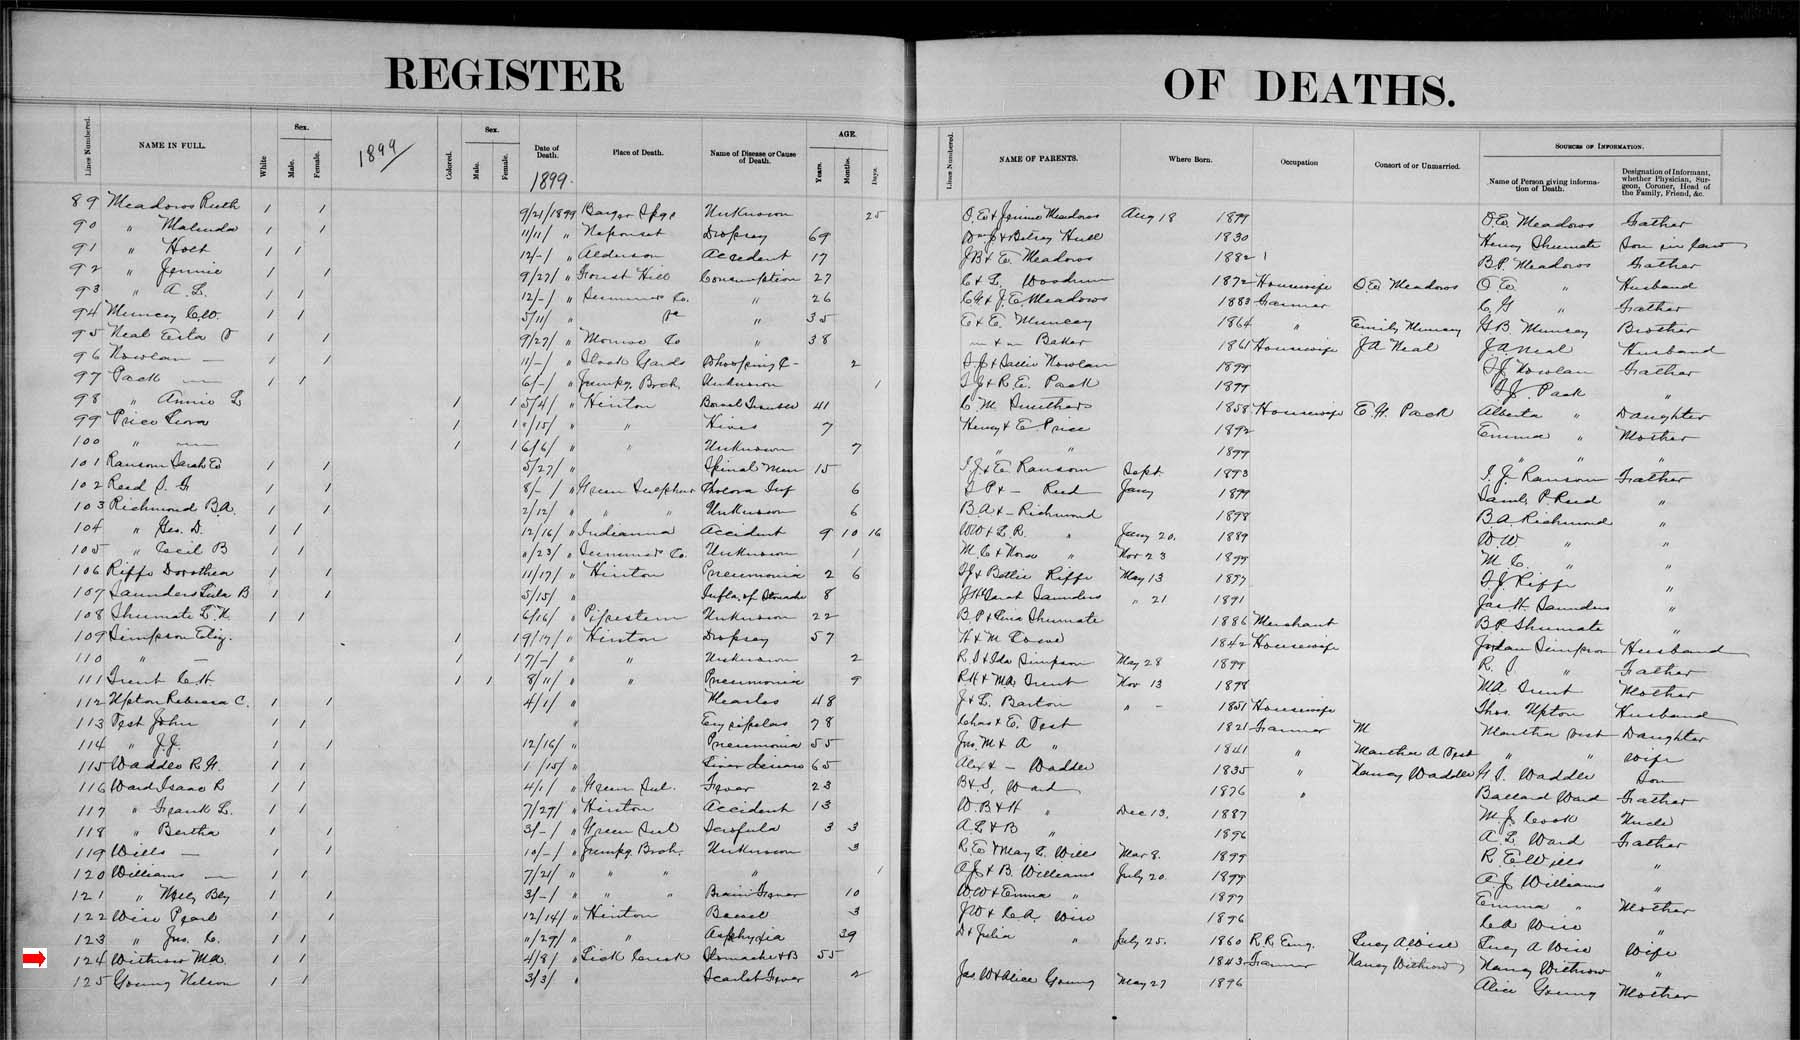 REGISTER OF DEATHS.
Lines Numbered. NAME IN FULL. White Sex. Male. Female. 1899/ Colored. Sex. Male. Female. Date of Death. 1899. Place of Death. Name of Disease or Cause of Death. AGE. Years. Months. Days. Lines Numbered. NAME OF PARENTS. Where Born. Occupation Consort of or Unmarried. SOURCES OF INFORMATION. Name of Person giving information of Death. Designation of Informant, whether Physician, Surgeon, Coroner, Head of the Family, Friend, &c.
89 Meadows Ruth / / 9/21/1899 Barger Spgs Unknown 25 O.E & Jennie Meadows Aug 18 1899 O.E. Meadows Father
90 " Malinda / / 11/11/ " Neponset Dropsy 69 Wm J & Betsey Hull 1830 Henry Shumate Son in law
91 " Holt / / 12/-/ " Alderson Accident 17 J.B & E. Meadows 1882 B.P. Meadows Father
92 " Jennie / / 9/27/ " Forest Hill Consumption 27 C & L. Woodrum 1872 Housewife O.E. Meadows O.E. " Husband
93 " A.L. / / 12/-/ " Summers Co. " 26 C.G & J.E. Meadows 1883 Farmer C.G " Father
94 Muncey C.W. / / 5/11/ " " 35 E & E. Muncey 1864 " Emily Muncey G.B Muncey Brother
95 Neal Esta V / / 9/27/ " Monroe Co " 38 " & " Baker 1861 Housewife J.A Neal J.A. Neal Husband
96 Nowlan — / / 11/-/ " Whooping C- 2 & Sallie Nowlan 1899 Nowlan Father
97 Pack — / / 6/-/ " Jumpg. Brch. Unknown 1 & R.E. Pack 1899 Pack "
98 " Annie L / / 5/4/ " Hinton Bowel Trouble 41 C.M. Smithers 1858 Housewife E.H. Pack Alberta " Daughter
99 Price / / /15/ " " Hives 7 Henry & E. Price 1892 Emma " Mother
100 " — / / 6/6/ " " Unknown 7 " " 1899 " " "
101 Ransom Sarah E / / 5/27/ " Spinal Men 15 & E. Ransom Sept. 1893 Ransom Father
102 Reed / / 8/-/ " Green Sulphur Cholera Inf 6 & - Reed Jany 1899 P. Reed "
103 Richmond B.A. / / 2/12/ " " " Unknown 6 B.A & - Richmond 1898 B.A Richmond "
104 " Geo. D. / / 12/16/ " Indianna Accident 9 10 16 W.W & L.R. " Jany 20. 1889 W.W " "
105 " Cecil B / / /23/ " Summers Co. Unknown 1 M.C & Nora " Nov 23 1899 M.C. " "
106 Riffe Dorothea / / 11/17/ " Hinton Pneumonia 2 6 & Bettie Riffe May 13 1897 Riffe "
107 Saunders Lula B / / 5/15/ " Infla. of Stomache 8 Sarah Saunders " 21 1891 Jas H. Saunders "
108 Shumate / / 6/16/ " Pipestem Unknown 22 B.P & Shumate 1886 Merchant B.P. Shumate "
109 Simpson Eliz. / / 9/17/ " Hinton Dropsy 57 1842 Housewife Jordan Simpson Husband
110 " — / / 7/-/ " " Unknown 2 & Ida Simpson May 28 1899 " Father
111 Trent C.H. / / 8/11/ " " Pneumonia 9 R.H & M.A. Trent Nov 13 1898 M.A Trent Mother
112 Upton Rebecca C. / / 4/1/ " Measles 48 J & L. Barton " - 1851 Housewife Thos. Upton Husband
113 Vest John / / " Erysipelas 78 Chas & E. Vest 1821 Farmer M Martha Vest Daughter
114 " J.J. / / 12/16/ " Pneumonia 55 Jno. M & A " 1841 " Martha A Vest " " Wife
115 Waddle R.G. / / 1/15/ " Liver disease 65 Alex & - Waddle 1835 " Nancy Waddle Waddle Son
116 Ward Isaac R / / 4/1/ " Green Sul. Fever 23 B & S. Ward 1876 " Ballard Ward Father
117 " Frank L. / / 7/27/ " Hinton Accident 13 W.B & H " Dec 13. 1887 M.J. Cook Uncle
118 " Bertha / / 3/-/ " Green Sul Scrofula 3 3 A.L & B " 1896 A.L. Ward Father
119 Wills — / / 10/-/ " Jumpg. Brch. Unknown 3 R.E & May E. Wills Mar 8. 1899 R.E Wills "
120 Williams — / / 7/21/ " " " " 1 A.J & B. Williams July 20. 1899 A.J. Williams "
121 " / / 3/-/ " " " Brain Fever 10 W.W & Emma " 1897 Emma " Mother
122 Wise Pearl / / 12/14/ " Hinton Bowel 3 J.W & C.A. Wise 1896 C.A Wise "
123 " Jno. C. / / /29/ " " Asphyxia 39 D & Julia " July 25. 1860 R.R. Eng. Lucy A Wise Lucy A Wise Wife
124 Withrow M.A. / / 4/8/ " Lick Creek Stomache & B 55 1843 Farmer Nancy Withrow Nancy Withrow "
125 Young Nelson / / 3/3/ " Scarlet Fever 2 Jas W & Alice Young May 27 1896 Alice Young Mother